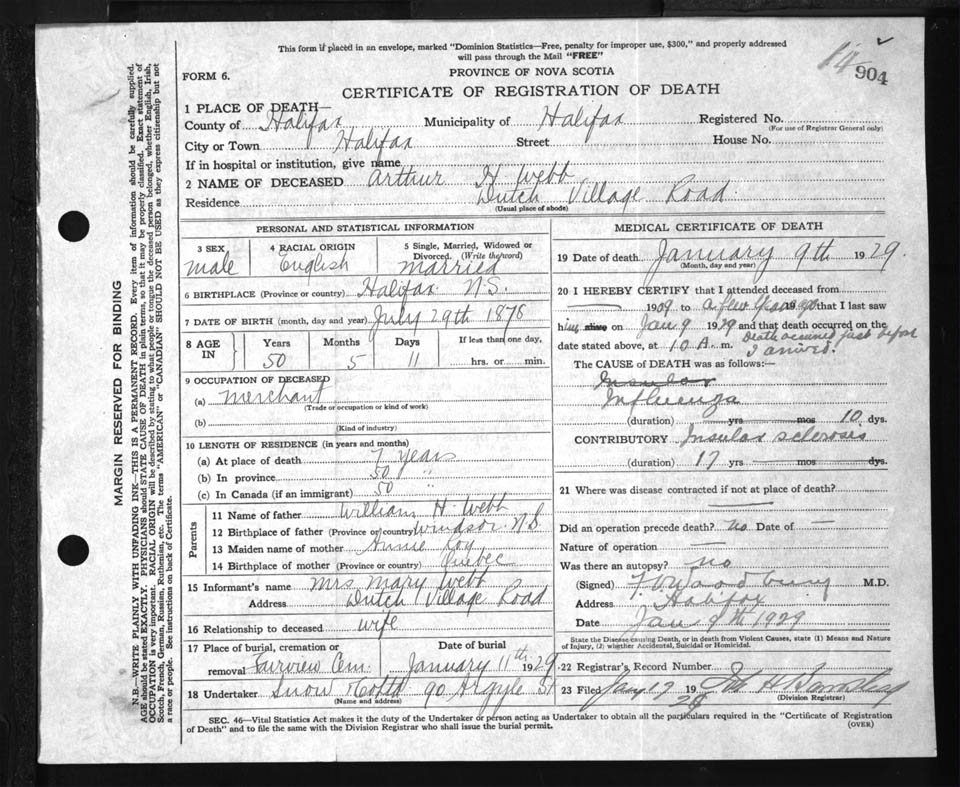 This form if placed in an envelope, marked "Dominion Statistics—Free, penalty for improper use, $300," and properly addressed
will pass through the Mail "FREE"
14
904
FORM 6.
PROVINCE OF NOVA SCOTIA
CERTIFICATE OF REGISTRATION OF DEATH
1 PLACE OF DEATH—
County of Halifax Municipality of Halifax Registered No.
(For use of Registrar General only)
City or Town Halifax Street House No.
If in hospital or institution, give name
2 NAME OF DECEASED Arthur H Webb
Residence Dutch Village Road
(Usual place of abode)
PERSONAL AND STATISTICAL INFORMATION
3 SEX
male
4 RACIAL ORIGIN
English
5 Single, Married, Widowed or
Divorced. (Write the word)
married
6 BIRTHPLACE (Province or country) Halifax N.S.
7 DATE OF BIRTH (month, day and year) July 29th 1878
8 AGE IN
Years Months Days If less than one day,
50 5 11 hrs. or min.
9 OCCUPATION OF DECEASED
(a) merchant
(Trade or occupation or kind of work)
(b)
(Kind of industry)
10 LENGTH OF RESIDENCE (in years and months)
(a) At place of death 7 years
(b) In province 50 "
(c) In Canada (if an immigrant) 50
Parents
11 Name of father William H. Webb
12 Birthplace of father (Province or country) Windsor N.S.
13 Maiden name of mother Annie Roy
14 Birthplace of mother (Province or country) Quebec
15 Informant's name Mrs Mary Webb
Address Dutch Village Road
16 Relationship to deceased wife
17 Place of burial, cremation or removal Fairview Cem.
Date of burial
January 11th 1929
18 Undertaker Snow & Co Ltd 90 Argyle St
(Name and address)
MEDICAL CERTIFICATE OF DEATH
19 Date of death January 9th 1929.
(Month, day and year)
20 I HEREBY CERTIFY that I attended deceased from
1909 to a few years ago that I last saw
him alive on Jan 9 1929 and that death occurred on the
date stated above, at 10 A. m. Death occurred just before
I arrived.
The CAUSE of DEATH was as follows:—
Insular
Influenza
(duration) yrs mos 10 dys.
CONTRIBUTORY Insular sclerosis
(duration) 17 yrs mos dys.
21 Where was disease contracted if not at place of death?
Did an operation precede death? no Date of —
Nature of operation —
Was there an autopsy? no
(Signed) M.D.
Address Halifax
Date Jan 9th 1929
State the Disease causing Death, or in death from Violent Causes, state (1) Means and Nature
of Injury, (2) whether Accidental, Suicidal or Homicidal.
22 Registrar's Record Number
23 Filed Jany 17 19 29
(Division Registrar)
SEC. 46—Vital Statistics Act makes it the duty of the Undertaker or person acting as Undertaker to obtain all the particulars required in the "Certificate of Registration
of Death" and to file the same with the Division Registrar who shall issue the burial permit.
(OVER)
MARGIN RESERVED FOR BINDING
N.B.—WRITE PLAINLY WITH UNFADING INK—THIS IS A PERMANENT RECORD. Every item of information should be carefully supplied.
AGE should be stated EXACTLY. PHYSICIANS should STATE CAUSE OF DEATH in plain terms, so that it may be properly classified. Exact statement of
OCCUPATION is very important. RACIAL ORIGIN will be described by stating to what people or tongue the deceased person belonged, whether English, Irish,
Scotch, French, German, Russian, Ruthenian, etc. The terms "AMERICAN" or "CANADIAN" SHOULD NOT BE USED as they express citizenship but not
a race or people. See instructions on back of Certificate.